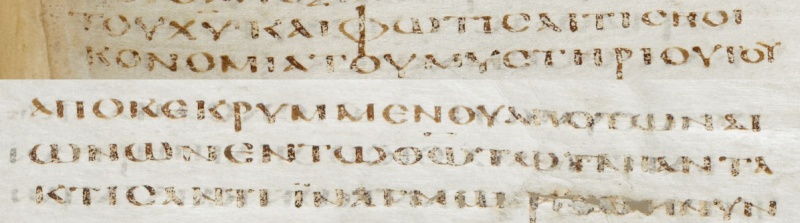 ΤΟΥΧΥΚΑΙΦΩΤΙϹΑΙΤΙϹΗΟΙ
ΚΟΝΟΜΙΑΤΟΥΜΥϹΤΗΡΙΟΥΤΟΥ
ΑΠΟΚΕΚΡΥΜΜΕΝΟΥΑΠΟΤΩΝΑΙ
ΩΝΩΝΕΝΤΩΘΩΤΩΤΑΠΑΝΤΑ
ΚΤΙϹΑΝΤΙ ΪΝΑΓΝΩ ΝΥΝ